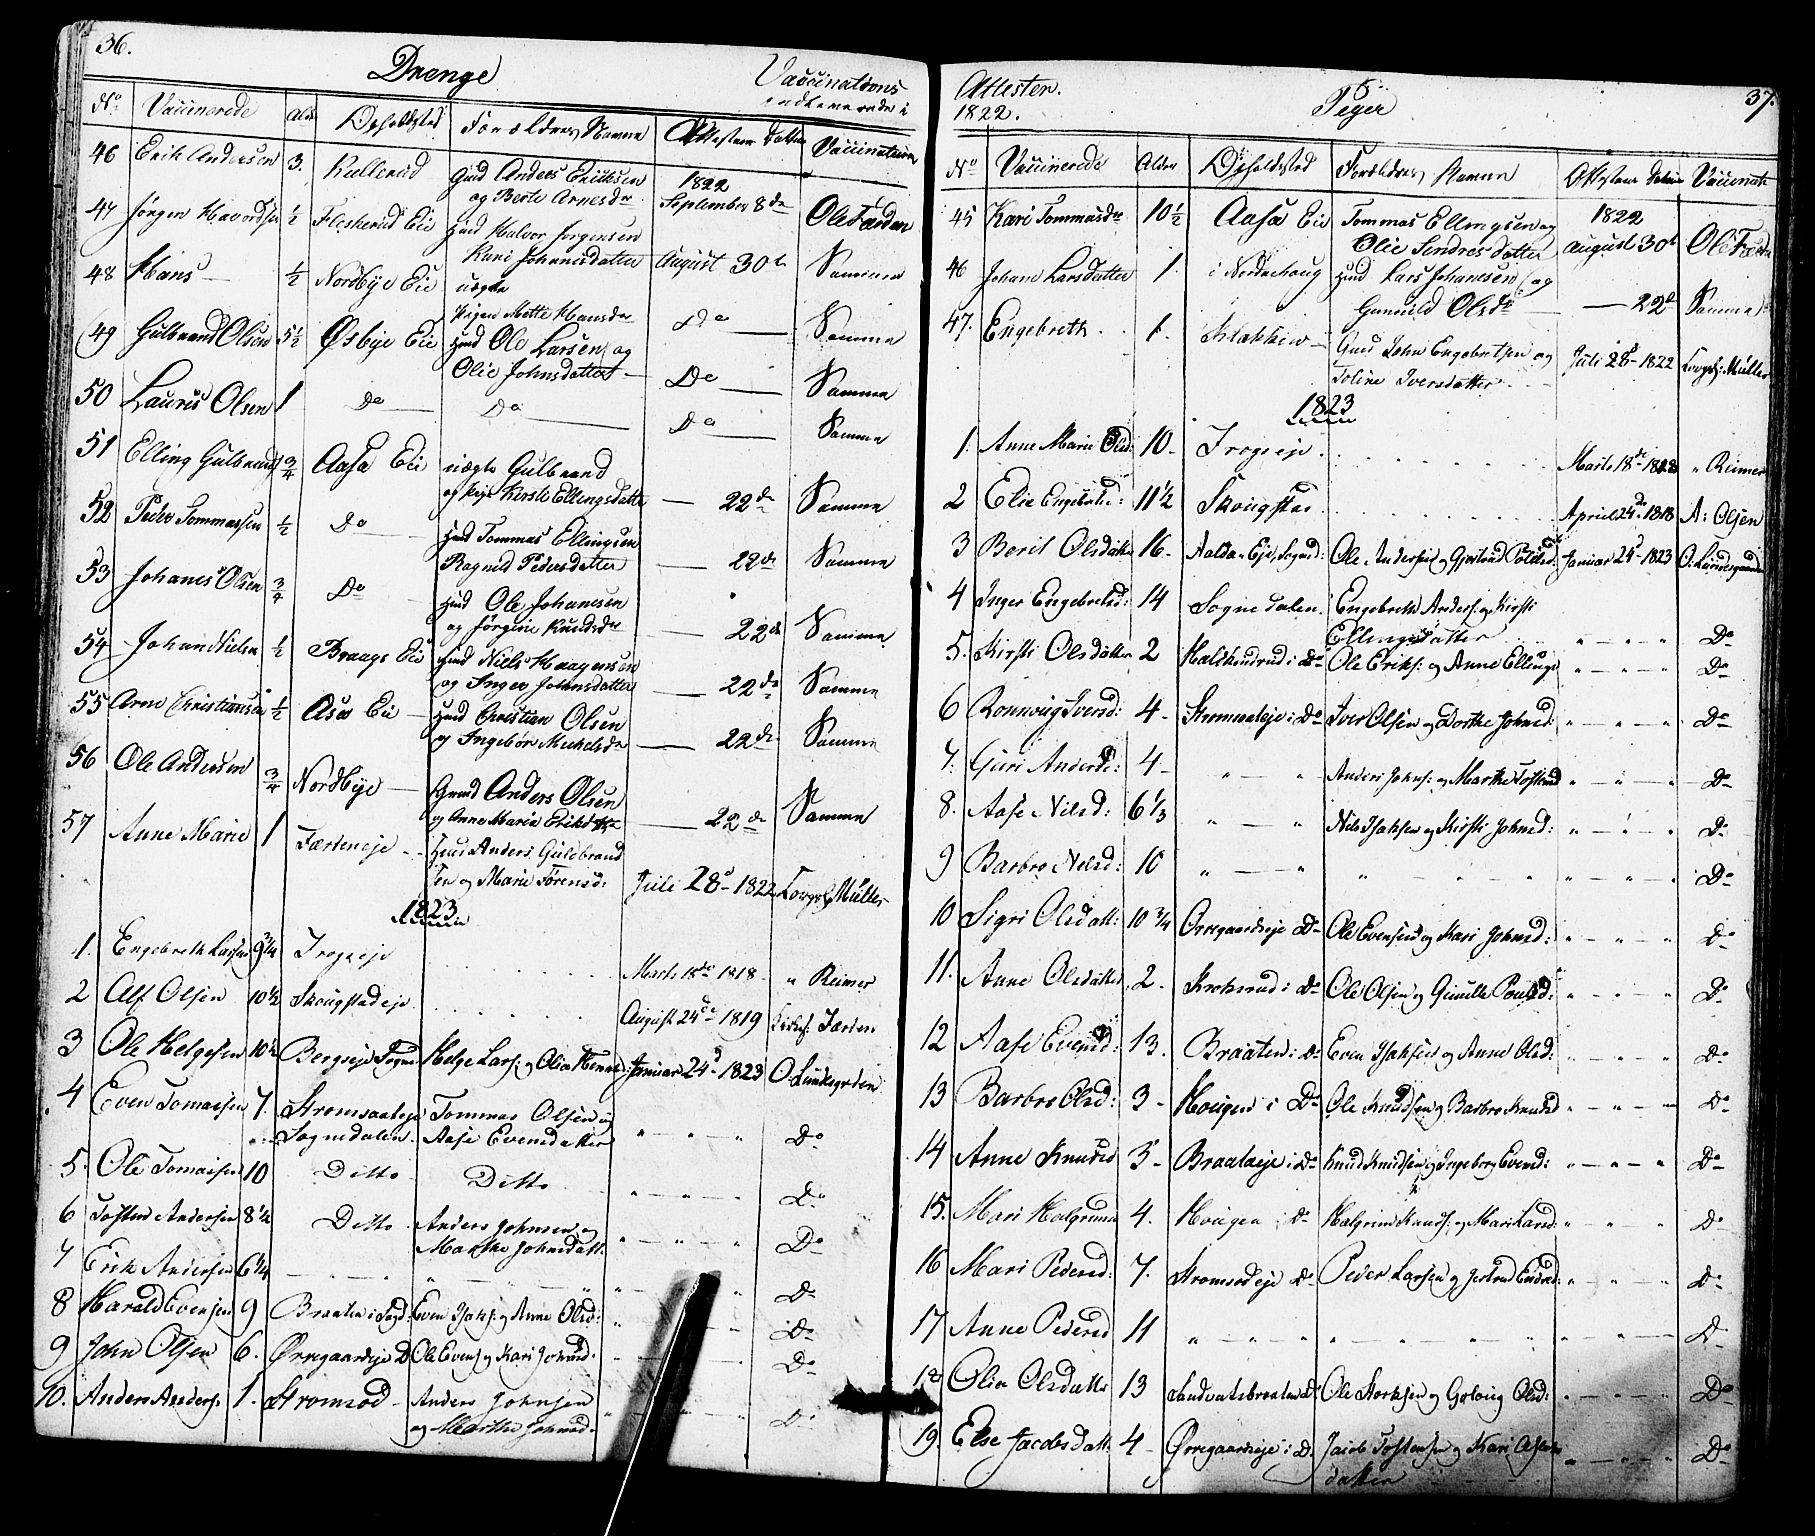 36.
Drenge
Vaccinations
indleverede i
No Vaccinerede Ald: Opholdsted Forældres Navne Attestens Datum Vaccinateur
46 Erik Andersen 3. Kullerud Gmd Anders Ericksen
og Berte Arnesdr 1822 September 8de Ole Færden
47 Jørgen Havordsen 1/2 Fleskerud Eie Hmd Halvor Jorgensen
Kari Johannsdatter August 30te Samme
48 Hans — 1/2 Nordbye Eie uægte
Pigen Mette Hansdr Do — Samme
49 Gulbrand Olsen 5 1/2 Øsbye Eie Hmd Ole Larsen og
Olie Johnsdatter — Do — Samme
50 Lauris Olsen 1 Do — Do — Do — Samme
51 Elling Gulbrand 3/4 Aasa Eie uægte Gulbrand
og Pige Kirsti Ellingsdatter — 22de Samme
52 Peder Tommassen 1/2 Do — Hmd Tommas Ellingsen
Ragnild Pedersdatter — 22de Samme
53 Johanes Olsen 3/4 Do — Hmd Ole Johanesen
og Jørgine Knudsdr — 22de Samme
54 Johan Nielsen 1/2 Braags Eie Hmd Niels Haagensen
og Inger Johnsdatter — 22de Samme
55 Arne Christiansen 1/2 Asa Eie — Hmd Christian Olsen
og Ingebør Michelsdr — 22de Samme
56 Ole Andersen 3/4 Nordbye — Gmd Anders Olsen
og Anne Maria Eriksdtr — 22de Samme
57 Anne Marie 1 Færdeneje Huus Anders Guldbrand
sen og Marie Sørensd: Juli 28d 1822 Corps: Müller
1823
1. Engebreth Larsen 9 3/4 Trogseje Marts 18de 1818 " Reimer
2 Alf Olsen 10 1/2 Skougstadeje August 24de 1819 Kirks: Færden
3 Ole Helgesen 10 1/2 Bergseje Sogned Helge Lars: og Olia Hanne Januar 24d 1823 O Lundesgarden
4 Even Tomassen 7. Stromsaateje Tommas Olsen og
Sognedalen. Aase Evensdatter " — " — " Do
5. Ole Tomassen 10 Ditto Ditto " — " — " Do
6 Tosten Andersen 8 1/2 Ditto Anders Johnsen og
Marthe Johnsdatt: " — " — " Do
7 Erik Andersen 6 1/4 " — " — " Do
8 Harald Evensen 9 Braaten i Sogd: Even Isaks: og Anne Olsd: Do
9 John Olsen 6. Ørregaardseje D Ole Evens: og Kari Johnsd: Do
10. Anders Anders: 1. Stromsod — Anders Johnsen
og Marthe Johnsd: Do
37.
Attester.
1822.
Piger
No Vaccinerede Alder Opholdsted Forældres Navne Attestens Datum Vaccinate
45 Kari Tommasdr 10 1/2 Aasa Eie Tommas Ellingsen og
Olie Sondresdatter 1822 August 30te Ole Færden
46 Johane Larsdatter 1. i Norderhoug Hmd Lars Johanesen og
Gunnild Olsdr — 22de Samme
47. Engebreth 1. Gmd John Engebretsen og
Toline Iversdatter Juli 28d 1822 Corpsf: Müller
1823
1. Anne Marie Olsd: 10 Trogseje Marts 18de 1818 " Reimer
2 Elie Engebretsd: 11 1/2 Skougstad April 24de 1818 A: Olsen
3 Berit Olsdatter 16 — Eje, Sognd: Ole Andersen og Gjertrud Januar 24d 1823 O: Lundesgaarden
4 Inger Engebretsd: 14 Sognedalen. Engebreth Anders: og Kirsti
Ellingsdatter " — " — " Do
5. Kirsti Olsdatter 2 i Do Ole Eriks: og Anne Ellings " — " — " Do
6 Ronnoug Iversd: 4 — i Do Iver Olsen og Dorthe Johnsd: " — " — " Do
7. Guri Andersd: 4 — " — " Anders Johns: og Marthe Tostensd " — " — " Do
8. Aase Nilsd: 6 1/3 " — " Nils Isaksen og Kirsti Johnsd: " — " — " Do
9 Barbro Nelsd: 10 " — " " " " — " — " Do
10 Sigri Olsdatt: 10 3/4 Orregaardseje Do Ole Evensen og Kari Johnsd: " — " — " Do
11. Anne Olsdatter 2. i Do Ole Olsen og Gunille Pousd: " — " — " Do
12 Aase Evensd: 13. Braaten i Do Even Isaksen og Anne Olsd: " — " — " Do
13 Barbro Olsd: 3 — Hougen i Do Ole Knudsen og Barbro Knudsd " — " — " Do
14 Anne Knudsd 3 — Braataeje i Do Knud Knudsen og Ingeborg Evensd: " — " — " Do
15. Mari Halgrims 4. Hougen i Do Halgrim Knuds: og Mari Larsd: " " " Do
16 Mari Pedersd: 7. Stromsodeje Do Peder Larsen og Jertrud " — " — " Do
17 Anne Pedersd 11 " — " — " " " " " — " — " Do
18 Olia Olsdatter 13 Sandvatsbraaten Do Ole Olsd: " — " — " Do
19. Else Jacobsdatt 4 — Ørregaardseje i D. Jacob Tostensen og Kari
datter " — " — " Do